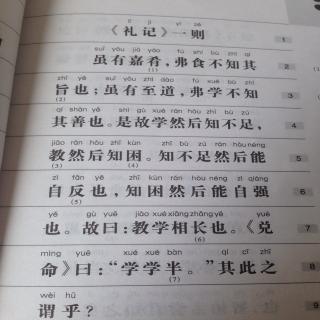 lǐ jì yì zé
《礼记》一则 1
suī yǒu jiā yáo fú shí bù zhī qí
虽有嘉肴，弗食不知其 2
zhǐ yě suī yǒu zhì dào fú xué bù zhī
旨也；虽有至道，弗学不知 3
(2)
qí shàn yě shì gù xué rán hòu zhī bù zú
其善也。是故学然后知不足， 4
jiāo rán hòu zhī kùn zhī bù zú rán hòu néng
教然后知困。知不足然后能 5
(3) (4)
zì fǎn yě zhī kùn rán hòu néng zì qiǎng
自反也，知困然后能自强 6
(5)
yě gù yuē jiào xué xiāng zhǎng yě yuè
也。故曰：教学相长也。《兑 7
(6)
mìng yuē xué xué bàn qí cǐ zhī
命》曰：“学学半。”其此之 8
(7)
wèi hū
谓乎？ 9